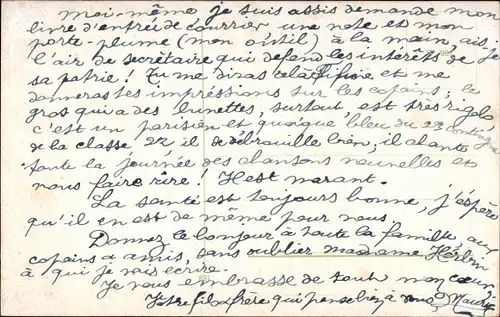 moi-même je suis assis demande mon
livre d'entrée de courrier une note et mon
porte-plume (mon outil) à la main, ais-je
l'air de secrétaire qui défend les intérêts de
sa patrie! Tu me diras cela Fifine et me
donneras tes impréssions sur les copains; le
gros qui a des lunettes, surtout, est très rigolo
c'est un parisien et quoique bleu du 2e conting
de la classe 22 il se débrouille bien; il chante
toute la journée des chansons nouvelles et
nous faire rire! Il est marant.
La santé est toujours bonne, j'espère
qu'il en est de même pour nous.
Donnez le bonjour à toute la famille, aux
copains & amis, sans oublier madame
à qui je vais écrire.
Je vous embrasse de tout mon cœur
Votre fils & frère qui pense bien à vous